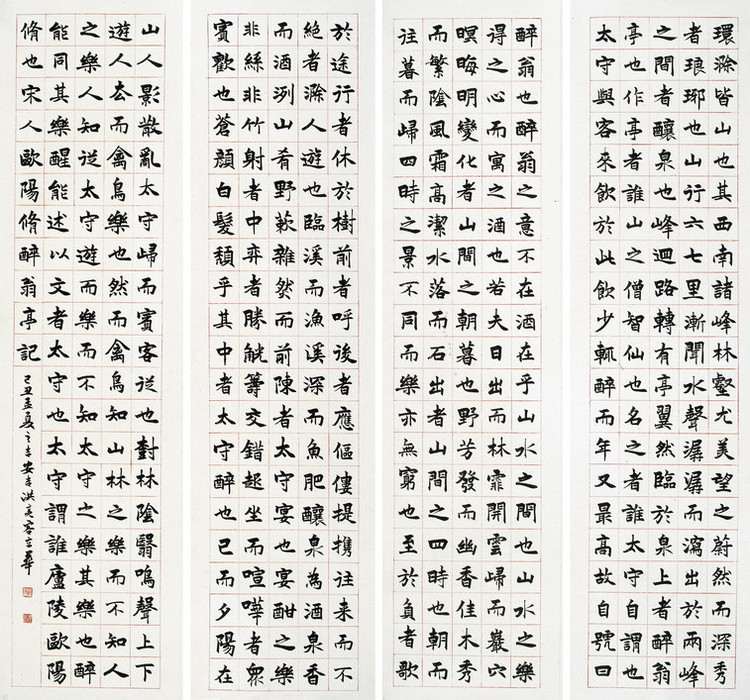 環滁皆山也其西南諸峰林壑尤美望之蔚然而深秀
者琅琊也山行六七里漸聞水聲潺潺而瀉出於兩峰
之間者釀泉也峰迴路轉有亭翼然臨於泉上者醉翁
亭也作亭者誰山之僧智仙也名之者誰太守自謂也
太守與客來飲於此飲少輒醉而年又最高故自號曰
醉翁也醉翁之意不在酒在乎山水之間也山水之樂
得之心而寓之酒也若夫日出而林霏開雲歸而巖穴
暝晦明變化者山間之朝暮也野芳發而幽香佳木秀
而繁陰風霜高潔水落而石出者山間之四時也朝而
往暮而歸四時之景不同而樂亦無窮也至於負者歌
於途行者休於樹前者呼後者應傴僂提攜往来而不
絕者滁人遊也臨溪而漁溪深而魚肥釀泉為酒泉香
而酒洌山肴野蔌雜然而前陳者太守宴也宴酣之樂
非絲非竹射者中弈者勝觥籌交錯起坐而喧嘩者衆
賓歡也蒼顏白髮頹乎其中者太守醉也已而夕陽在
山人影散亂太守歸而賓客從也對林陰翳鳴聲上下
遊人去而禽鳥樂也然而禽鳥知山林之樂而不知人
之樂人知從太守遊而樂而不知太守之樂其樂也醉
能同其樂醒能述以文者太守也太守謂誰廬陵歐陽
脩也宋人歐陽脩醉翁亭記
己丑孟夏之吉安吉洪亮